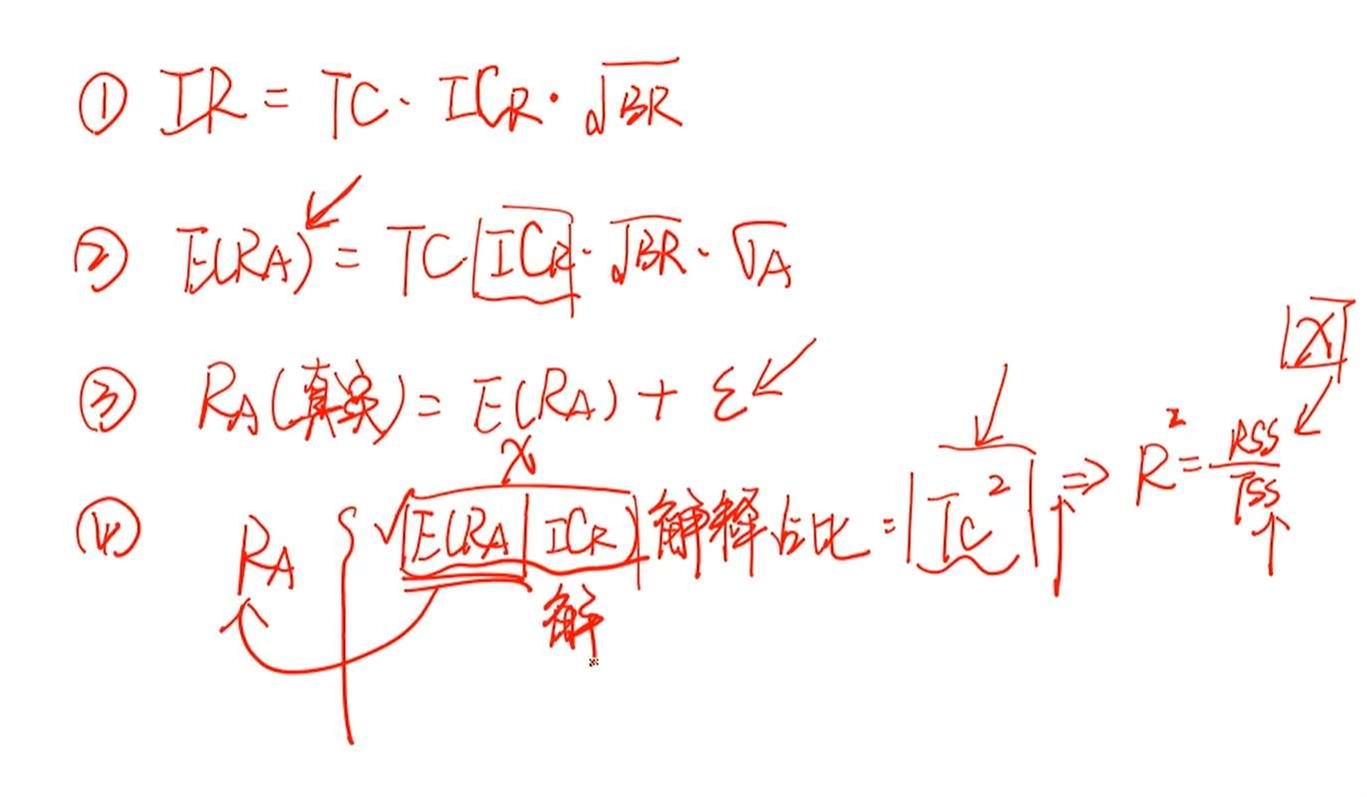 ① IR = TC · ICR · √BR
② E(RA) = TC ICR · √BR · σA
③ RA (真实) = E(RA) + ε
x
④ RA { √ E(RA | ICR) 解释占比 = TC² ⇒ R² = RSS / TSS
x
解